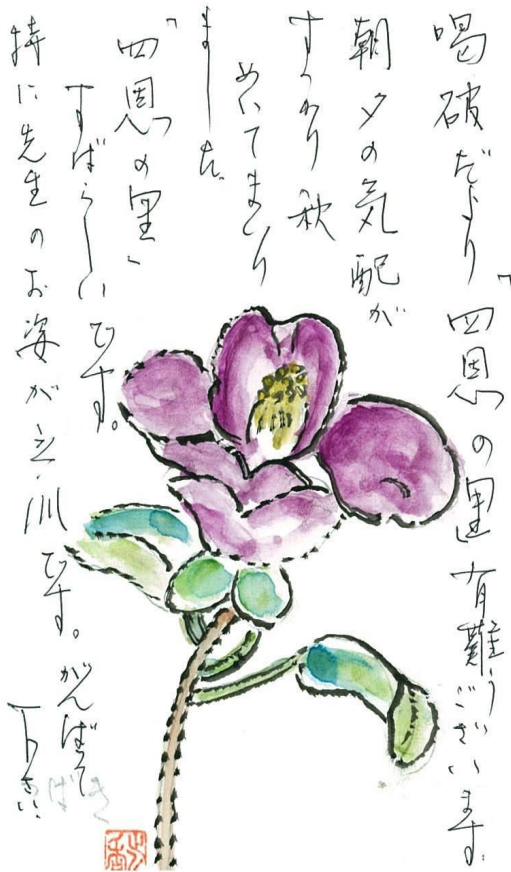 喝破だより「四恩の里」有難うございます。
朝夕の気配が
すっかり秋
めいてまいり
ました。
「四恩の里」
すばらしいです。
特に先生のお姿が立派です。がんばって
下さい